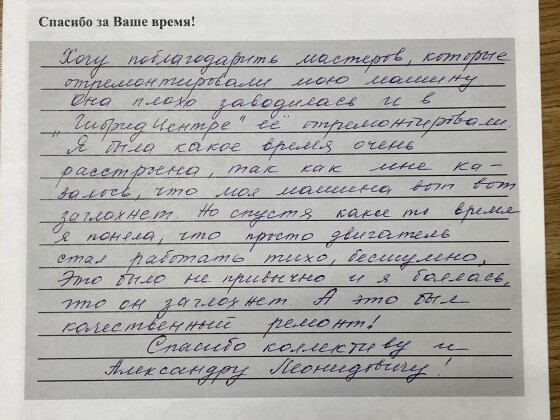 Спасибо за Ваше время!
Хочу поблагодарить мастеров, которые
отремонтировали мою машину.
Она плохо заводилась и в
„ГибридЦентре" её отремонтировали.
Я была какое время очень
расстроена, так как мне ка-
залось, что моя машина вот вот
заглохнет. Но спустя какое то время
я поняла, что просто двигатель
стал работать тихо, бесшумно,
Это было не привычно и я боялась,
что он заглохнет. А это был
качественный ремонт!
Спасибо коллективу и
Александру Леонидовичу!